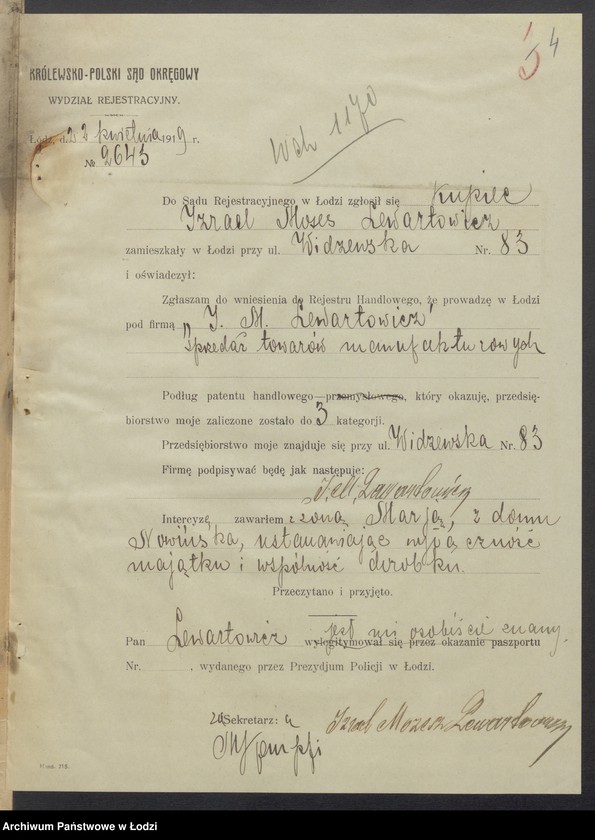 4
KRÓLEWSKO-POLSKI SĄD OKRĘGOWY
WYDZIAŁ REJESTRACYJNY.
Łódź, d. 22 kwietnia 1919 r.
№ 2643
1170
Do Sądu Rejestracyjnego w Łodzi zgłosił się kupiec
Izrael Moses Lewartowicz
zamieszkały w Łodzi przy ul. Widzewska Nr. 83
i oświadczył:
Zgłaszam do wniesienia do Rejestru Handlowego, że prowadzę w Łodzi
pod firmą „I. M. Lewartowicz"
sprzedaż towarów manufakturowych
Podług patentu handlowego—przemysłowego, który okazuję, przedsię-
biorstwo moje zaliczone zostało do 3 kategorji.
Przedsiębiorstwo moje znajduje się przy ul. Widzewska Nr. 83
Firmę podpisywać będę jak następuje:
I. M. Lewartowicz
Intercyzę zawarłem z żoną Marją, z domu
Nowińska, ustanawiając wyłączność
majątku i wspólność dorobku.
Przeczytano i przyjęto.
jest mi osobiście znany.
Pan Lewartowicz wylegitymował się przez okazanie paszportu
Nr. , wydanego przez Prezydjum Policji w Łodzi.
Sekretarz: Izrael Mozesz Lewartowicz
Archiwum Państwowe w Łodzi